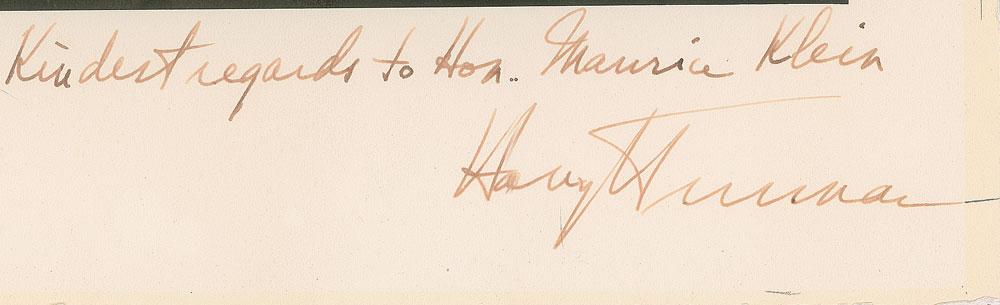 Kindest regards to Hon. Maurice Klein
Harry Truman